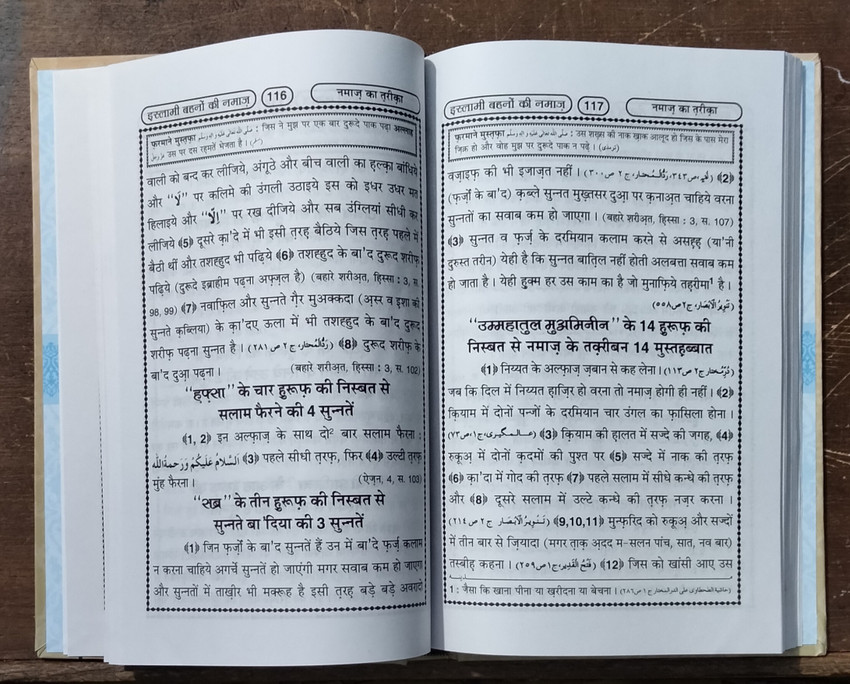 इस्लामी बहनों की नमाज़ 116 नमाज़ का त़रीक़ा
फ़रमाने मुस्त़फ़ा صلى الله تعالى عليه واله وسلم : जिस ने मुझ पर एक बार दुरूदे पाक पढ़ा अल्लाह
उस पर दस रह़मतें भेजता है। (مسلم)
वाली को बन्द कर लीजिये, अंगूठे और बीच वाली का ह़ल्क़ा बांधिये
और “لَا” पर कलिमे की उंगली उठाइये इस को इधर उधर मत
हिलाइये और “اِلَّا” पर रख दीजिये और सब उंग्लियां सीधी कर
लीजिये ﴾5﴿ दूसरे क़ा'दे में भी इसी त़रह़ बैठिये जिस त़रह़ पहले में
बैठी थीं और तशह्हुद भी पढ़िये ﴾6﴿ तशह्हुद के बा'द दुरूद शरीफ़
पढ़िये (दुरूदे इब्राहीम पढ़ना अफ़्ज़ल है) (बहारे शरीअ़त, ह़िस्सा : 3, स.
98, 99) ﴾7﴿ नवाफ़िल और सुन्नते ग़ैर मुअक्कदा (अ़स्र व इशा की
सुन्नते क़ब्लिया) के क़ा'दए ऊला में भी तशह्हुद के बा'द दुरूद
शरीफ़ पढ़ना सुन्नत है। (رَدُّالْمُحتار، ج ٢ ص ٢٨١) ﴾8﴿ दुरूद शरीफ़ के
बा'द दुआ़ पढ़ना। (बहारे शरीअ़त, ह़िस्सा : 3, स. 102)
“ह़फ़्स़ा” के चार हुरूफ़ की निस्बत से
सलाम फेरने की 4 सुन्नतें
﴾1, 2﴿ इन अल्फ़ाज़ के साथ दो² बार सलाम फेरना :
اَلسَّلَامُ عَلَيْكُمْ وَرَحمةُالله ﴾3﴿ पहले सीधी त़रफ़, फिर ﴾4﴿ उल्टी त़रफ़
मुंह फेरना। (ऐज़न, 4, स. 103)
“सब्र” के तीन हुरूफ़ की निस्बत से
सुन्नते बा'दिया की 3 सुन्नतें
﴾1﴿ जिन फ़र्ज़ों के बा'द सुन्नतें हैं उन में बा'दे फ़र्ज़ कलाम
न करना चाहिये अगर्चे सुन्नतें हो जाएंगी मगर सवाब कम हो जाएगा
और सुन्नतों में ताख़ीर भी मक्रूह है इसी त़रह़ बड़े बड़े अवरादो
इस्लामी बहनों की नमाज़ 117 नमाज़ का त़रीक़ा
फ़रमाने मुस्त़फ़ा صلى الله تعالى عليه واله وسلم : उस शख़्स की नाक ख़ाक आलूद हो जिस के पास मेरा
ज़िक्र हो और वोह मुझ पर दुरूदे पाक न पढ़े। (ترمذی)
वज़ाइफ़ की भी इजाज़त नहीं। (غُنیہ، ص٣٤٣، رَدُّالْمُحتار، ج ٢ ص ٣٠٠) ﴾2﴿
(फ़र्ज़ों के बा'द) क़ब्ले सुन्नत मुख़्तसर दुआ़ पर क़नाअ़त चाहिये वरना
सुन्नतों का सवाब कम हो जाएगा। (बहारे शरीअ़त, ह़िस्सा : 3, स. 107)
﴾3﴿ सुन्नत व फ़र्ज़ के दरमियान कलाम करने से असह़्ह़ (या'नी
दुरुस्त तरीन) येही है कि सुन्नत बात़िल नहीं होती अलबत्ता सवाब कम
हो जाता है। येही ह़ुक्म हर उस काम का है जो मुनाफ़िये तह़रीमा¹ है।
(تنویرُ الْاَبصار، ج٢ ص٥٥٨)
“उम्महातुल मुअमिनीन” के 14 हुरूफ़ की
निस्बत से नमाज़ के तक़्रीबन 14 मुस्तह़ब्बात
﴾1﴿ निय्यत के अल्फ़ाज़ ज़बान से कह लेना। (دُرِّمُختار ج ٢ ص ١١٣)
जब कि दिल में निय्यत ह़ाज़िर हो वरना तो नमाज़ होगी ही नहीं। ﴾2﴿
क़ियाम में दोनों पन्जों के दरमियान चार उंगल का फ़ासिला होना।
(عالمگیری، ج١، ص٧٣) ﴾3﴿ क़ियाम की ह़ालत में सज्दे की जगह, ﴾4﴿
रुकूअ़ में दोनों क़दमों की पुश्त पर ﴾5﴿ सज्दे में नाक की त़रफ़
﴾6﴿ क़ा'दा में गोद की त़रफ़ ﴾7﴿ पहले सलाम में सीधे कन्धे की त़रफ़
और ﴾8﴿ दूसरे सलाम में उल्टे कन्धे की त़रफ़ नज़र करना।
(تنویرُ الْاَبصار ج ٢ ص ٢١٤) ﴾9,10,11﴿ मुन्फ़रिद को रुकूअ़ और सज्दों
में तीन बार से ज़ियादा (मगर त़ाक़ अ़दद म-सलन पांच, सात, नव बार)
तस्बीह़ कहना। (فتحُ القدیر، ج١ ص٢٥٩) ﴾12﴿ जिस को खांसी आए उस
1 : जैसा कि खाना पीना या ख़रीदना या बेचना। (حاشیۃ الطحطاوی علی الدرالمختار ج ١ ص ٢٨٦)